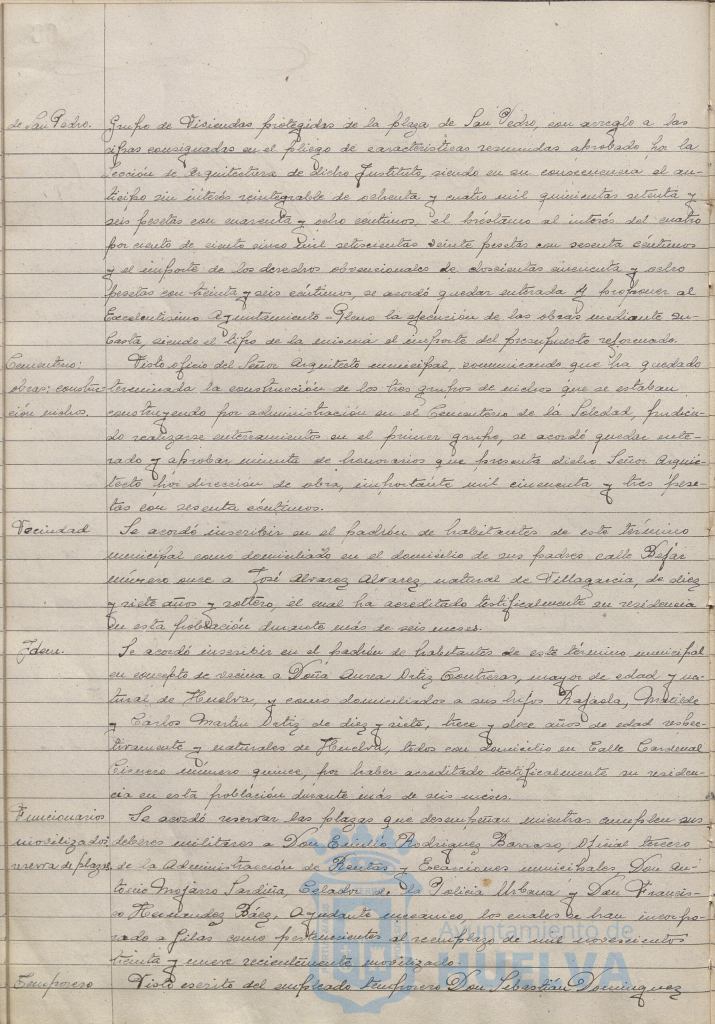 de San Pedro. Grupo de Viviendas protegidas de la plaza de San Pedro, con arreglo a las
cifras consignadas en el pliego de características resumidas aprobado por la
Sección de Arquitectura de dicho Instituto, siendo en su consecuencia el an-
ticipo sin interés reintegrable de ochenta y cuatro mil quinientas setenta y
seis pesetas con cuarenta y ocho céntimos, el préstamo al interés del cuatro
por ciento de ciento cinco mil setecientas veinte pesetas con sesenta céntimos
y el importe de los derechos obvencionales de doscientas cincuenta y ocho
pesetas con treinta y seis céntimos, se acordó quedar enterada y proponer al
Excelentísimo Ayuntamiento-Pleno la ejecución de las obras mediante su-
basta, siendo el tipo de la misma el importe del presupuesto reformado.
Cementerio: Visto oficio del Señor Arquitecto municipal, comunicando que ha quedado
obras: construc- terminada la construcción de los tres grupos de nichos que se estaban
ción nichos. construyendo por administración en el Cementerio de la Soledad, pudien-
do realizarse enterramientos en el primer grupo, se acordó quedar ente-
rado y aprobar minuta de honorarios que presenta dicho Señor Arqui-
tecto por dirección de obra, importante mil cincuenta y tres pese-
tas con sesenta céntimos.
Vecindad Se acordó inscribir en el padrón de habitantes de este término
municipal como domiciliado en el domicilio de sus padres calle Bejar
número once a José Alvarez Alvarez, natural de Villagarcia, de diez
y siete años y soltero, el cual ha acreditado testificalmente su residencia
en esta población durante más de seis meses.
Idem. Se acordó inscribir en el padrón de habitantes de este término municipal
en concepto de vecina a Doña Aurea Ortiz Contreras, mayor de edad y na-
tural de Huelva, y como domiciliados a sus hijos Rafaela, Matilde
y Carlos Martin Ortiz de diez y siete, trece y doce años de edad respec-
tivamente y naturales de Huelva, todos con domicilio en Calle Cardenal
Cisnero número quince, por haber acreditado testificalmente su residen-
cia en esta población durante más de seis meses.
Funcionarios Se acordó reservar las plazas que desempeñan mientras cumplen sus
movilizados deberes militares a Don Emilio Rodriguez Barroso, Oficial tercero
reserva de plazas. de la Administración de Rentas y Exacciones municipales, Don An-
tonio Mojarro Sardiña, Celador de la Policia Urbana y Don Francis-
co Hernandez Báez, Ayudante mecánico, los cuales se han incorpo-
rado a filas como pertenecientes al reemplazo de mil novecientos
treinta y nueve recientemente movilizado.
Temporero Visto escrito del empleado temporero Don Sebastián Dominguez
Ayuntamiento de
HUELVA